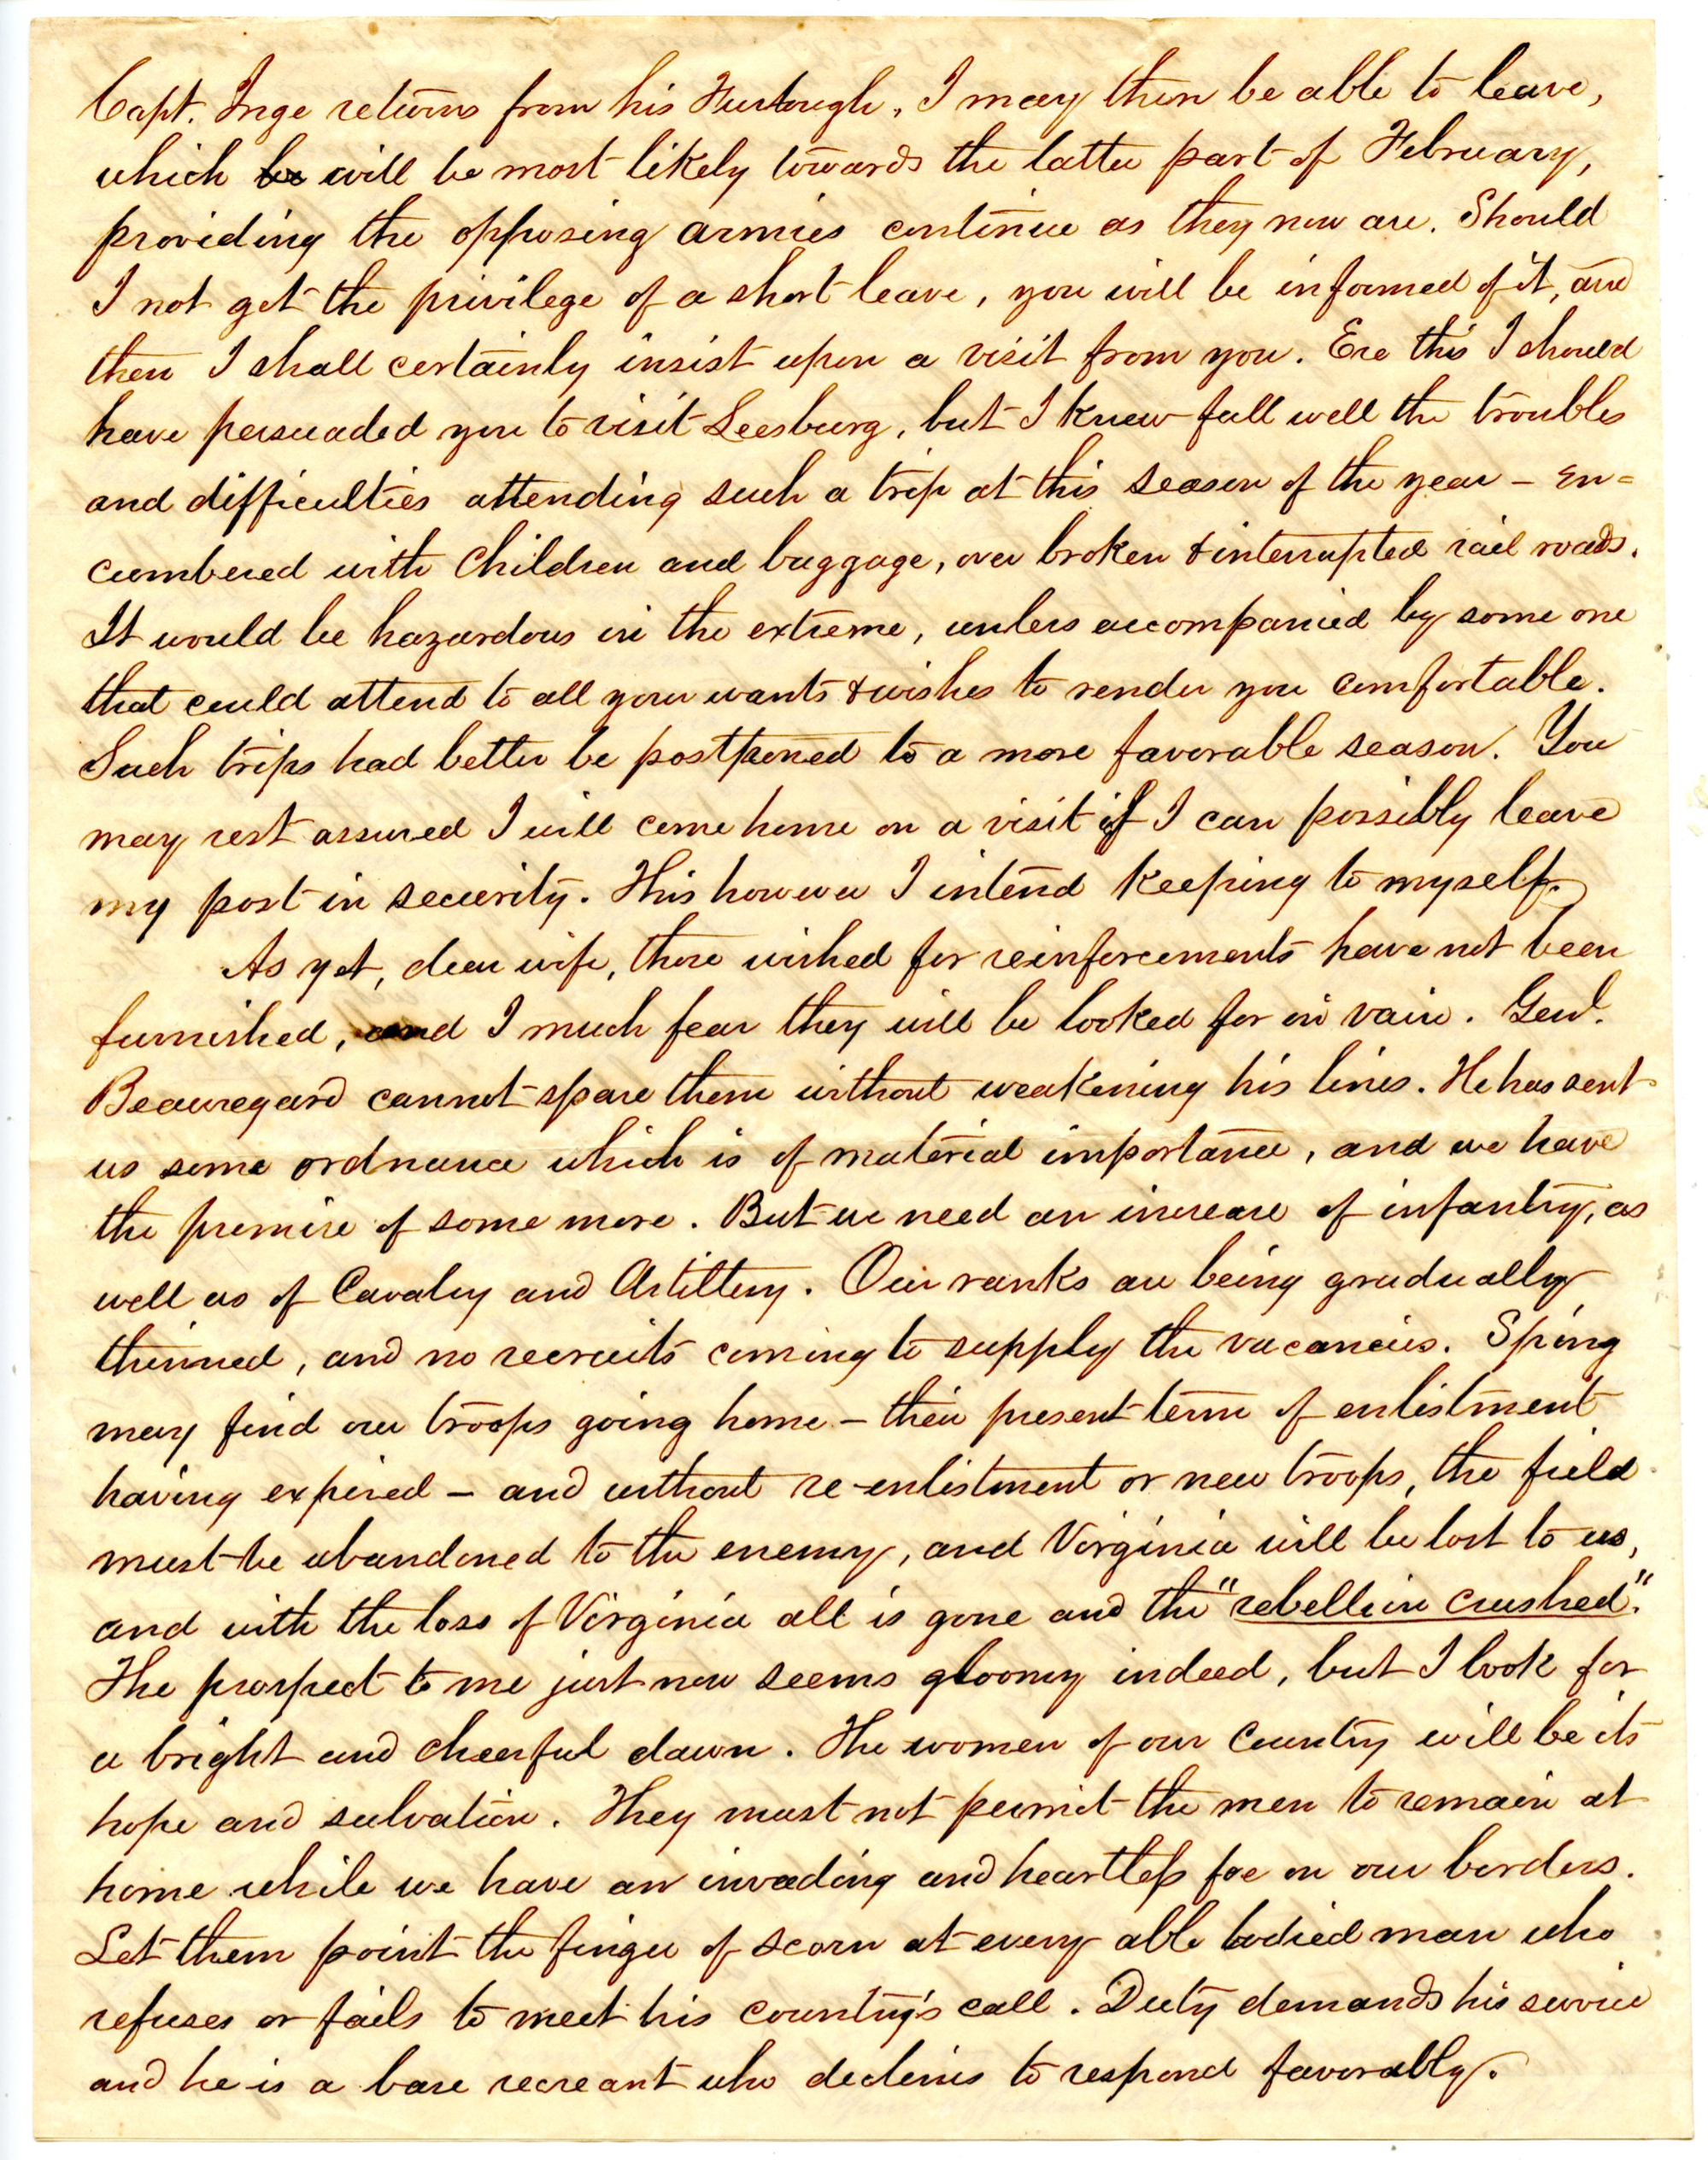 Capt. Inge returns from his Furlough, I may then be able to leave,
which be will be most likely towards the latter part of February,
providing the opposing armies continue as they now are. Should
I not get the privilege of a short leave, you will be informed of it, and
then I shall certainly insist upon a visit from you. Ere this I should
have persuaded you to visit Leesburg, but I knew full well the troubles
and difficulties attending such a trip at this season of the year – en=
cumbered with Children and baggage, over broken & interrupted rail roads.
It would be hazardous in the extreme, unless accompanied by some one
that could attend to all your wants & wishes to render you comfortable.
Such trips had better be postponed to a more favorable season. You
may rest assured I will come home on a visit if I can possibly leave
my post in security. This however I intend keeping to myself.
As yet, dear wife, those wished for reinforcements have not been
furnished, and I much fear they will be looked for in vain. Genl.
Beauregard cannot spare them without weakening his lines. He has sent
us some ordnance which is of material importance, and we have
the promise of some more. But we need an increase of infantry, as
well as of Cavalry and Artillery. Our ranks are being gradually
thinned, and no recruits coming to supply the vacancies. Spring
may find our troops going home – their present term of enlistment
having expired – and without re-enlistment or new troops, the field
must be abandoned to the enemy, and Virginia will be lost to us,
and with the loss of Virginia all is gone and the "rebellion crushed".
The prospect to me just now seems gloomy indeed, but I look for
a bright and cheerful dawn. The women of our Country will be its
hope and salvation. They must not permit the men to remain at
home while we have an invading and heartless foe on our borders.
Let them point the finger of scorn at every able bodied man who
refuses or fails to meet his country's call. Duty demands his service
and he is a base recreant who declines to respond favorably.